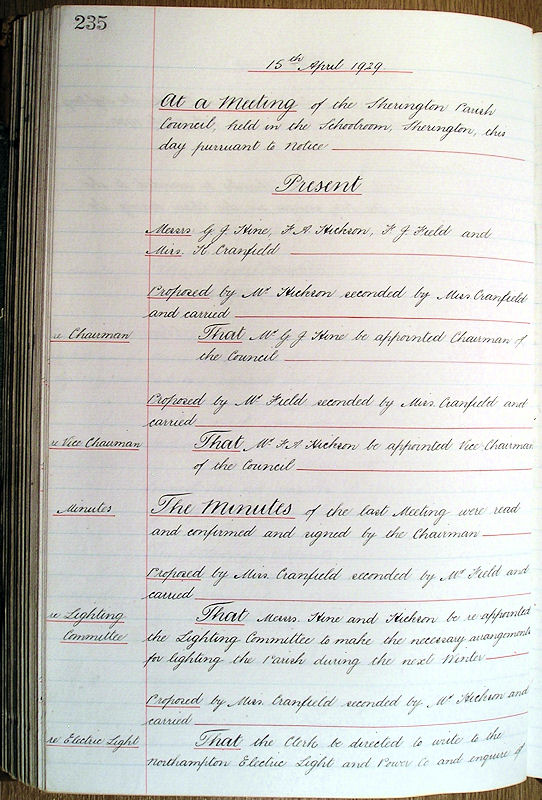 235
15th April 1929
At a Meeting of the Sherington Parish
Council, held in the Schoolroom, Sherington, this
day pursuant to notice
Present
Messrs G J Hine, F A Hickson, F J Field and
Miss K Cranfield
Proposed by Mr Hickson seconded by Miss Cranfield
and carried
re Chairman That Mr G J Hine be appointed Chairman of
the Council
Proposed by Mr Field seconded by Miss Cranfield and
carried
re Vice Chairman That Mr F A Hickson be appointed Vice Chairman
of the Council
Minutes The Minutes of the last Meeting were read
and confirmed and signed by the Chairman
Proposed by Miss Cranfield seconded by Mr Field and
carried
re Lighting That Messrs Hine and Hickson be re appointed
Committee the Lighting Committee to make the necessary arrangements
for lighting the Parish during the next Winter
Proposed by Miss Cranfield seconded by Mr Hickson and
carried
re Electric Light That the Clerk be directed to write to the
Northampton Electric Light and Power Co and enquire of